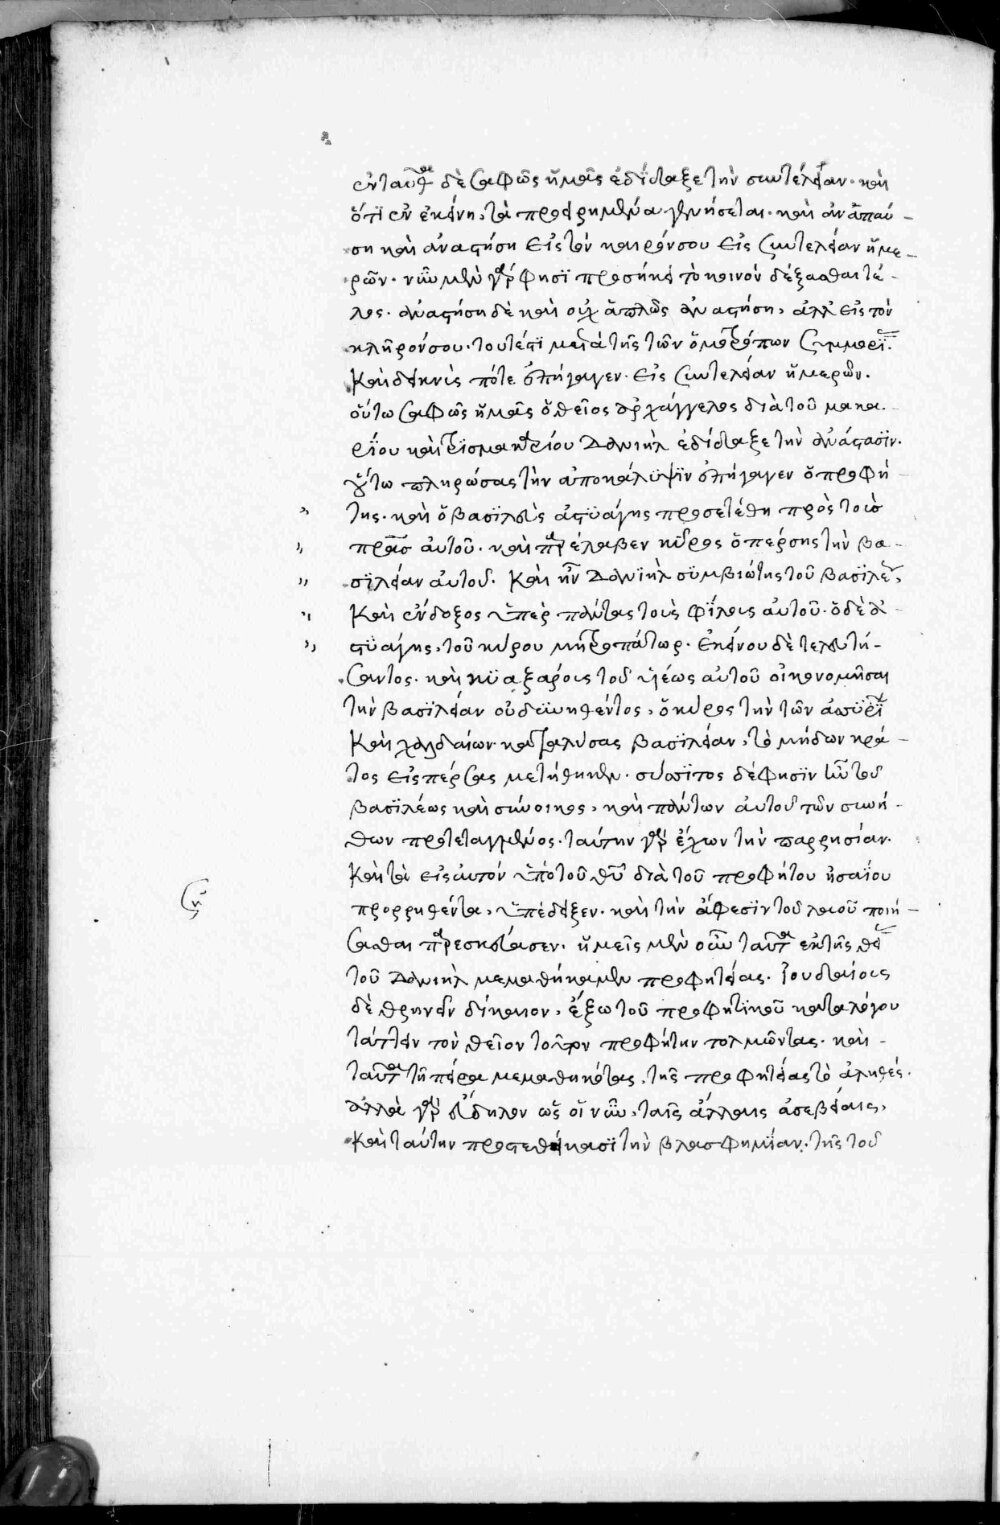 ἐνταῦθα δὲ σαφῶς ἡμᾶς ἐδίδαξε τὴν συντέλειαν· καὶ
ὅτι ἐν ἐκείνη, τὰ προειρημένα γενήσεται· καὶ ἀναπαύ-
ση καὶ ἀναστήση εἰς τὸν καιρόν σου εἰς συντέλειαν ἡμε-
ρῶν· νῦν μὲν γάρ φησι προσήκει τὸ κοινὸν δέξασθαι τέ-
λος· ἀναστήση δὲ καὶ οὐχ ἁπλῶς ἀναστήση, ἀλλ' εἰς τὸν
κλῆρόν σου· τουτέστι μετὰ τῆς τῶν ὁμοτρόπων συμμορί
Καὶ δεικνὺς πότε ἐπήγαγεν· εἰς συντέλειαν ἡμερῶν·
οὕτω σαφῶς ἡμᾶς ὁ θεῖος ἀρχάγγελος διὰ τοῦ μακα-
ρίου καὶ τρισμακαρίου Δανιὴλ ἐδίδαξε τὴν ἀνάστασιν·
οὕτω πληρώσας τὴν ἀποκάλυψιν ἐπήγαγεν ὁ προφή-
της· καὶ ὁ βασιλεὺς ἀστυάγης προσετέθη πρὸς τοὺς
πρας αὐτοῦ· καὶ παρέλαβεν κῦρος ὁ πέρσης τὴν βα-
σιλείαν αὐτοῦ· Καὶ ἦν Δανιὴλ συμβιώτης τοῦ βασιλέ,
Καὶ ἔνδοξος ὑπὲρ πάντας τοὺς φίλους αὐτοῦ· ὁ δὲ ἀ-
στυάγης, τοῦ κύρου μητροπάτωρ· ἐκείνου δὲ τελευτή-
σαντος· καὶ κυαξάρους τοῦ υἱέως αὐτοῦ οἰκονομῆσαι
τὴν βασιλείαν οὐ δυνηθέντος, ὁ κύρος τὴν τῶν ἀσσυρί
Καὶ χαλδαίων καταλύσας βασιλείαν, τὸ μήδων κρά-
τος εἰς πέρσας μετήθηκεν· σύσσιτος δέ φησιν ἦν τοῦ
βασιλέως καὶ σύνοικος, καὶ πάντων αὐτοῦ τῶν συνή-
θων προτεταγμένος· ταύτην γὰρ ἔχων τὴν παρρησίαν·
Καὶ τὰ εἰς αὐτόν ὑπὸ τοῦ θυ διὰ τοῦ προφήτου ἠσαΐου
προρρηθέντα, ὑπέδειξεν· καὶ τὴν ἄφεσιν τοῦ λαοῦ ποιή-
σασθαι παρεσκεύασεν· ἡμεῖς μὲν οὖν ταῦτα ἐκ τῆς θεί
τοῦ Δανιὴλ μεμαθήκαμεν προφητείας· Ἰουδαίους
δὲ θρηνεῖν δίκαιον, ἔξω τοῦ προφητικοῦ καταλόγου
τάττειν τὸν θεῖον τοῦτον προφήτην τολμῶντας· καὶ-
ταῦτα τῆ πείρα μεμαθηκότας, τῆς προφητείας τὸ ἀληθές·
ἀλλὰ γὰρ εὔδηλον ὡς οἱ νῦν, ταῖς ἄλλαις ἀσεβείαις,
Καὶ ταύτην προστεθείκασι τὴν βλασφημίαν· τῆς τοῦ